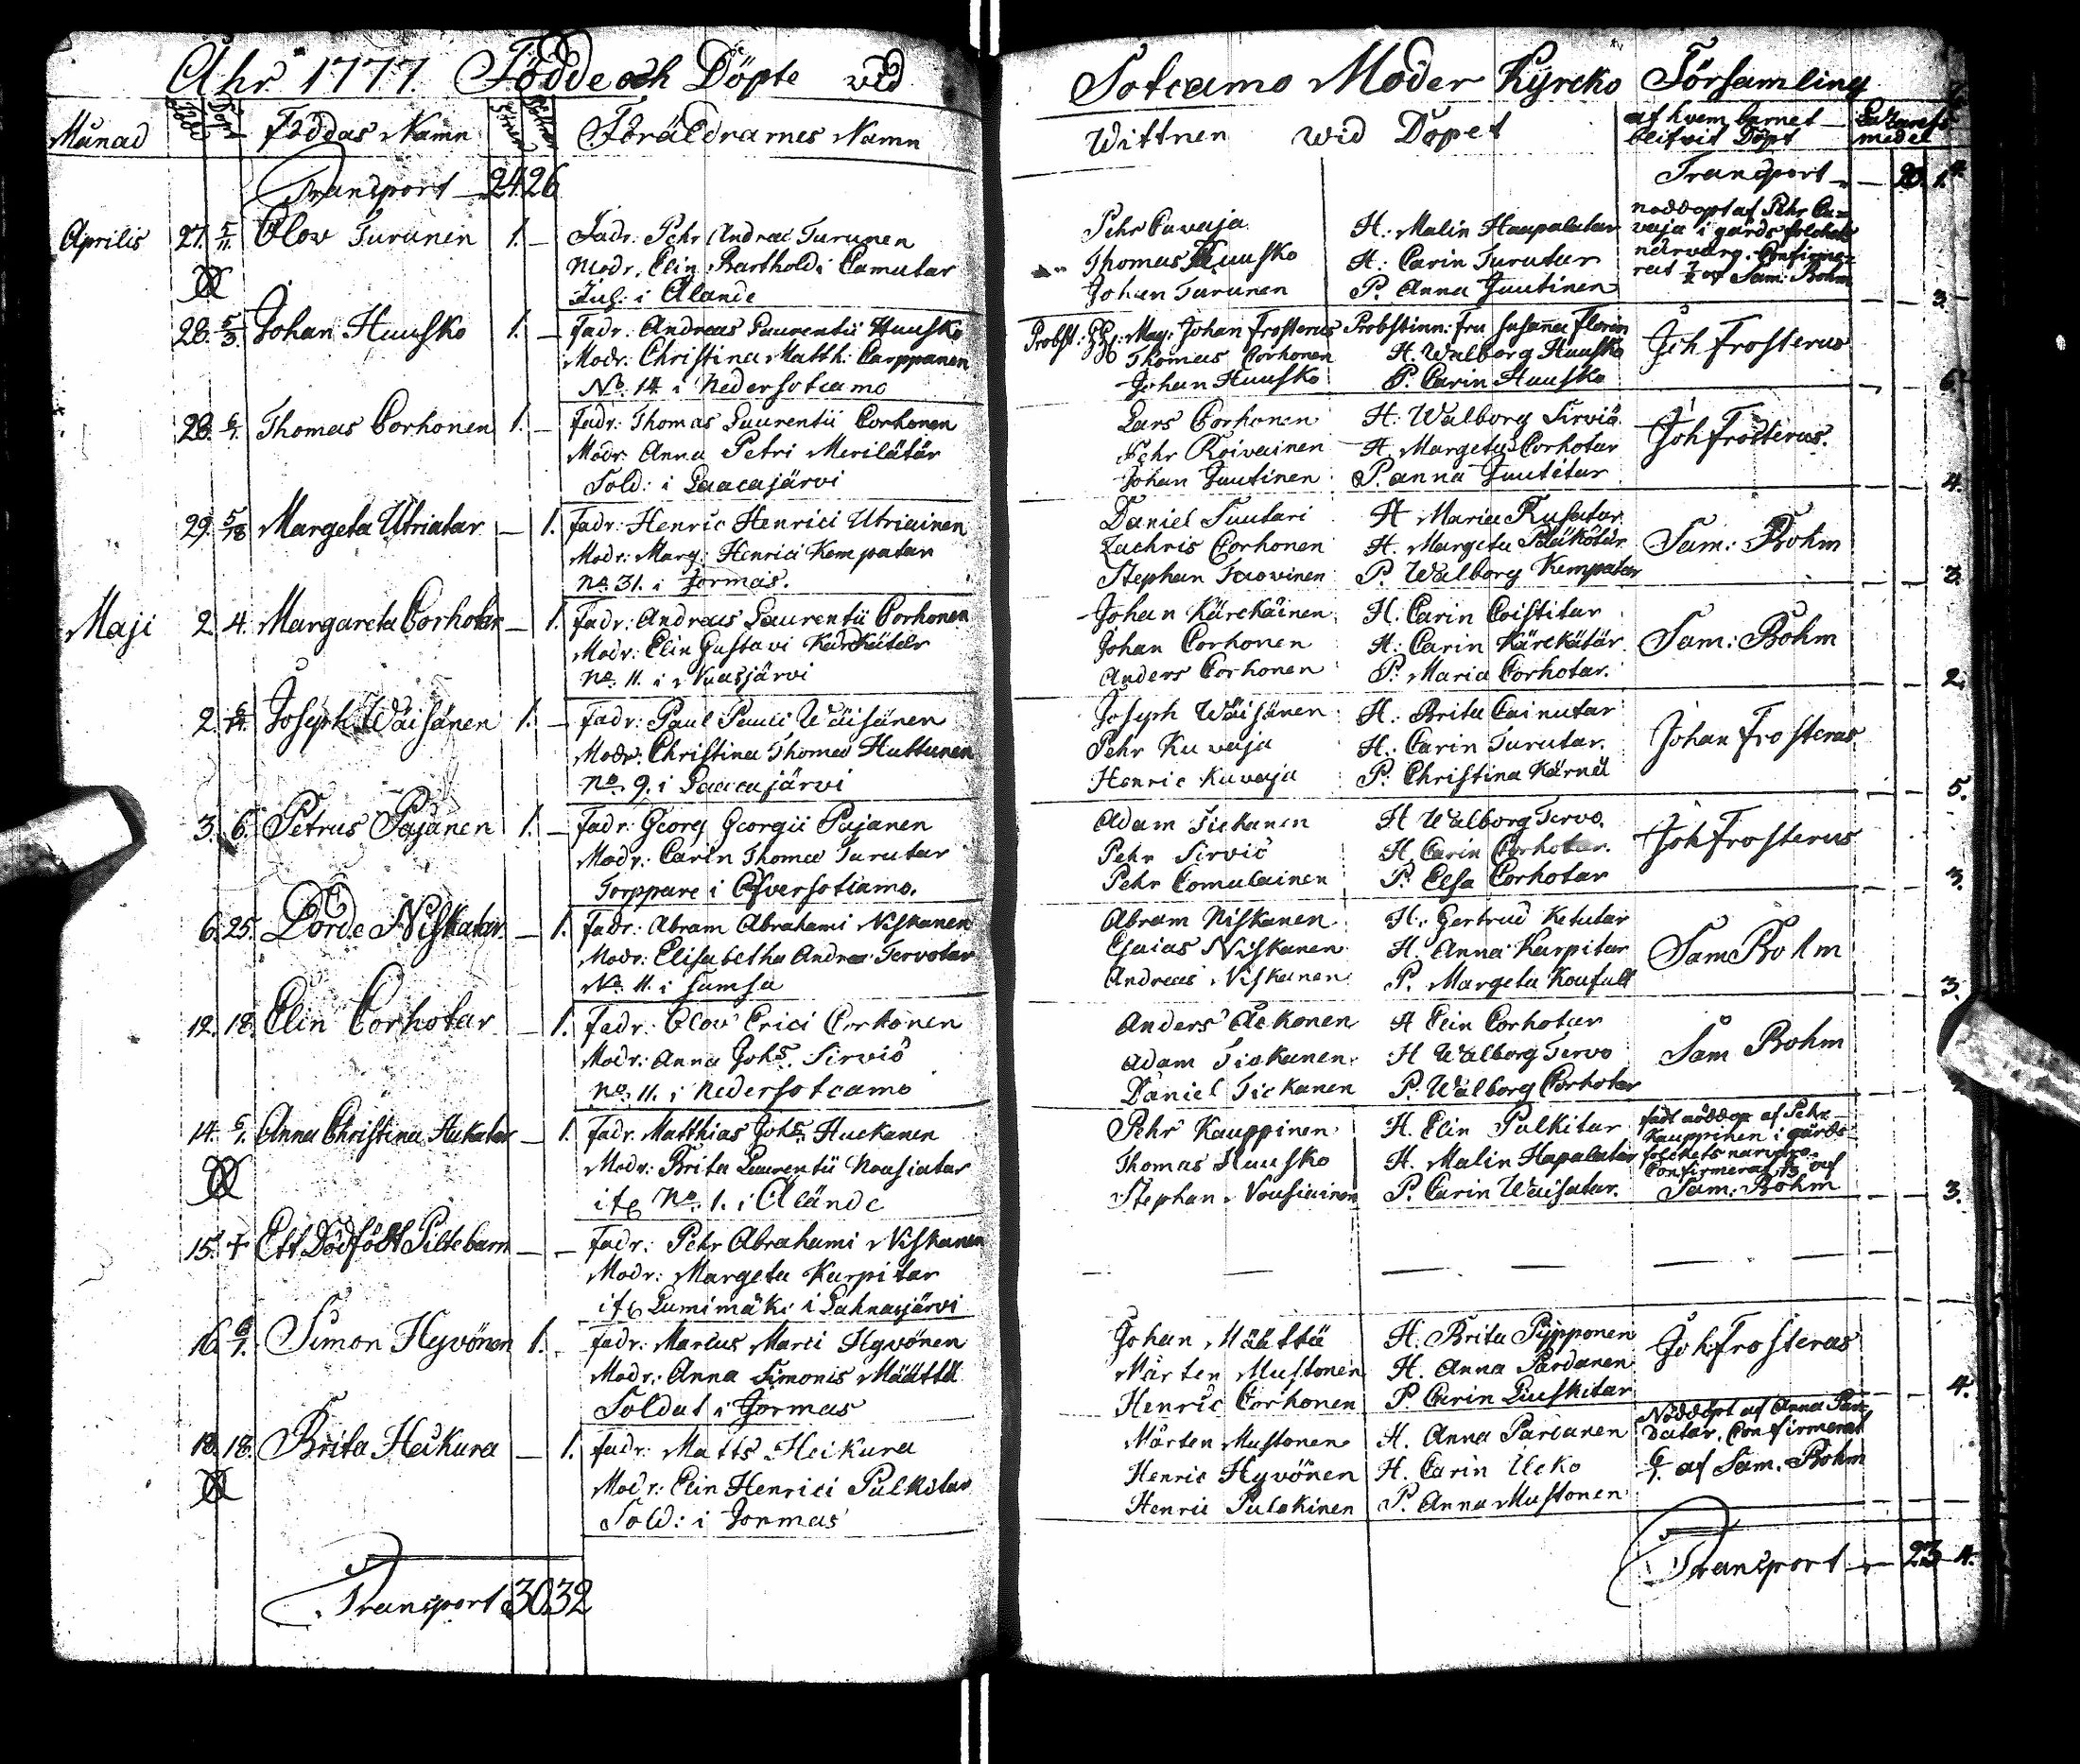 Ahr 1777. Födde och Döpte wid
Månad Född Döpt Föddas Namn Föräldrarnes Namn
Transport 24 26
Aprilis 27. 5/11. Olov Turunen 1. — Fadr: Pehr Andreæ Turunen
Modr. Elin Bartholdi Camutar
i Alande
28. 5/3. Johan Huusko 1. — Fadr: Andreas Laurentii Huusko
Modr: Christina Matth: Carppanen
No. 14 i Nedersotcamo
28. 6/1. Thomas Corhonen 1. — Fadr: Thomas Laurentii Corhonen
Modr: Anna Petri Merilätär
Sold: i Laacajärvi
29. 5/18 Margeta Utriatar — 1. Fadr: Henric Henrici Utriainen
Modr: Marg: Henrici Kempatar
no. 31. i Jormas.
Maji 2. 4. Margareta Corhotar — 1. Fadr: Andreas Laurentii Corhonen
Modr: Elin Gustavi Kärckätär
no. 11. i Nuasjärvi
2. Joseph Wäisänen 1. — Fadr: Paul Pauli Wäisänen
Modr: Christina Thomæ Huttunen
No. 9. i Laacajärvi
3. 6. Petrus Pajanen 1. — Fadr: Georg Georgii Pajanen
Modr: Carin Thomæ Turutar
Torppare i Ofversotcamo.
6. 25. Lorde Niskatar — 1. Fadr: Abram Abrahami Niskanen
Modr: Elisabetha Andreæ Tervotar
No. 11. i Sumsa
12. 18. Elin Corhotar — 1. Fadr: Olov Erici Corhonen
Modr: Anna Johs. Sirviö
no. 11. i Nedersotcamo
14. 6/1. Anna Christina Hukatar — 1. Fadr. Matthias Johs. Huckanen
Modr: Brita Laurentii Nousiatar
No. 1. i Alände
15. + Ett Dödfödt Piltebarn — — Fadr: Pehr Abrahami Niskanen
Modr: Margeta Karpitar
Lumimäki i Lahnasjärvi
16. 6/1. Simon Hyvönen 1. — Fadr: Marcus Marci Hyvönen
Modr: Anna Simonis Määttä
Soldat i Jormas
18. 18. Brita Heikura — 1. Fadr: Matts Heikura
Modr: Elin Henrici Pulkitar
Sold: i Jormas
Transport 30 32
Sotcamo Moder Kyrcko Församling
Wittnen wid Dopet af hvem barnet blifvit Döpt medel
Transport — 20. 1. 4.
Pehr Cuvaja H: Malin Haapalatar nöddöpt af Pehr Cu=
vaja i gårds folckets
Thomas Huusko H: Carin Turutar närvaro. Confirme=
Johan Turunen P. Anna Juutinen rat af Sam: Bohm 3.
Probst: Mag: Johan Frosterus Probstinn: Fru Susanna Florin Joh Frosterus
Thomas Corhonen H. Walborg Huusko
Johan Huusko P. Carin Huusko 6.
Lars Corhonen H: Walborg Sirviö Joh Frosterus.
Pehr Roivainen H. Margeta Corhotar
Johan Juutinen P. Anna Juutitar 4.
Daniel Suutari H Maria Rusatar Sam: Bohm
Zachris Corhonen H. Margeta Pääkötär
Stephan P. Walborg Kempatar 3.
Johan Kärckäinen H. Carin Coistitar Sam: Bohm
Johan Corhonen H: Carin Kärckätär
Anders Corhonen P: Maria Corhotar. 2.
Joseph Wäisänen H: Brita Cainutar Johan Frosterus
Pehr Kuvaja H: Carin Turutar.
Henric Kuvaja P: Christina Kärnä 5.
Adam Tickanen H Walborg Tervo. Joh Frosterus
Pehr Sirviö H. Carin Corhotar.
Pehr Comulainen P. Elsa Corhotar 3.
Abram Niskanen H: Gertrud Ketutar Sam Bohm
Esaias Niskanen H. Anna Karpitar
Andreas Niskanen P. Margeta 3.
Anders H Elin Corhotar Sam Bohm
Adam Tickanen H Walborg Tervo
Daniel Tickanen P. Walborg Corhotar
Pehr Kauppinen H. Elin Pulkitar nöddöp af Pehr
Kauppinen i gårds
Thomas Huusko H. Malin Hapalatar folckets närvaro.
Confirmerat af
Stephan Nousiainen P. Carin Waisatar. Sam: Bohm 3.
— — — — —
Johan Määttä H. Brita Pypponen Joh Frosterus
Mårten Mustonen H. Anna Pardanen
Henric Corhonen P. Carin Luskitar 4.
Mårten Mustonen H. Anna Pardanen Nöddöpt af Anna Par=
datar. Confirmerat
Henric Hyvönen H. Carin Ucko 6/1. af Sam. Bohm
Henric Pulckinen P. Anna Mustonen
Transport — 23 — 4.